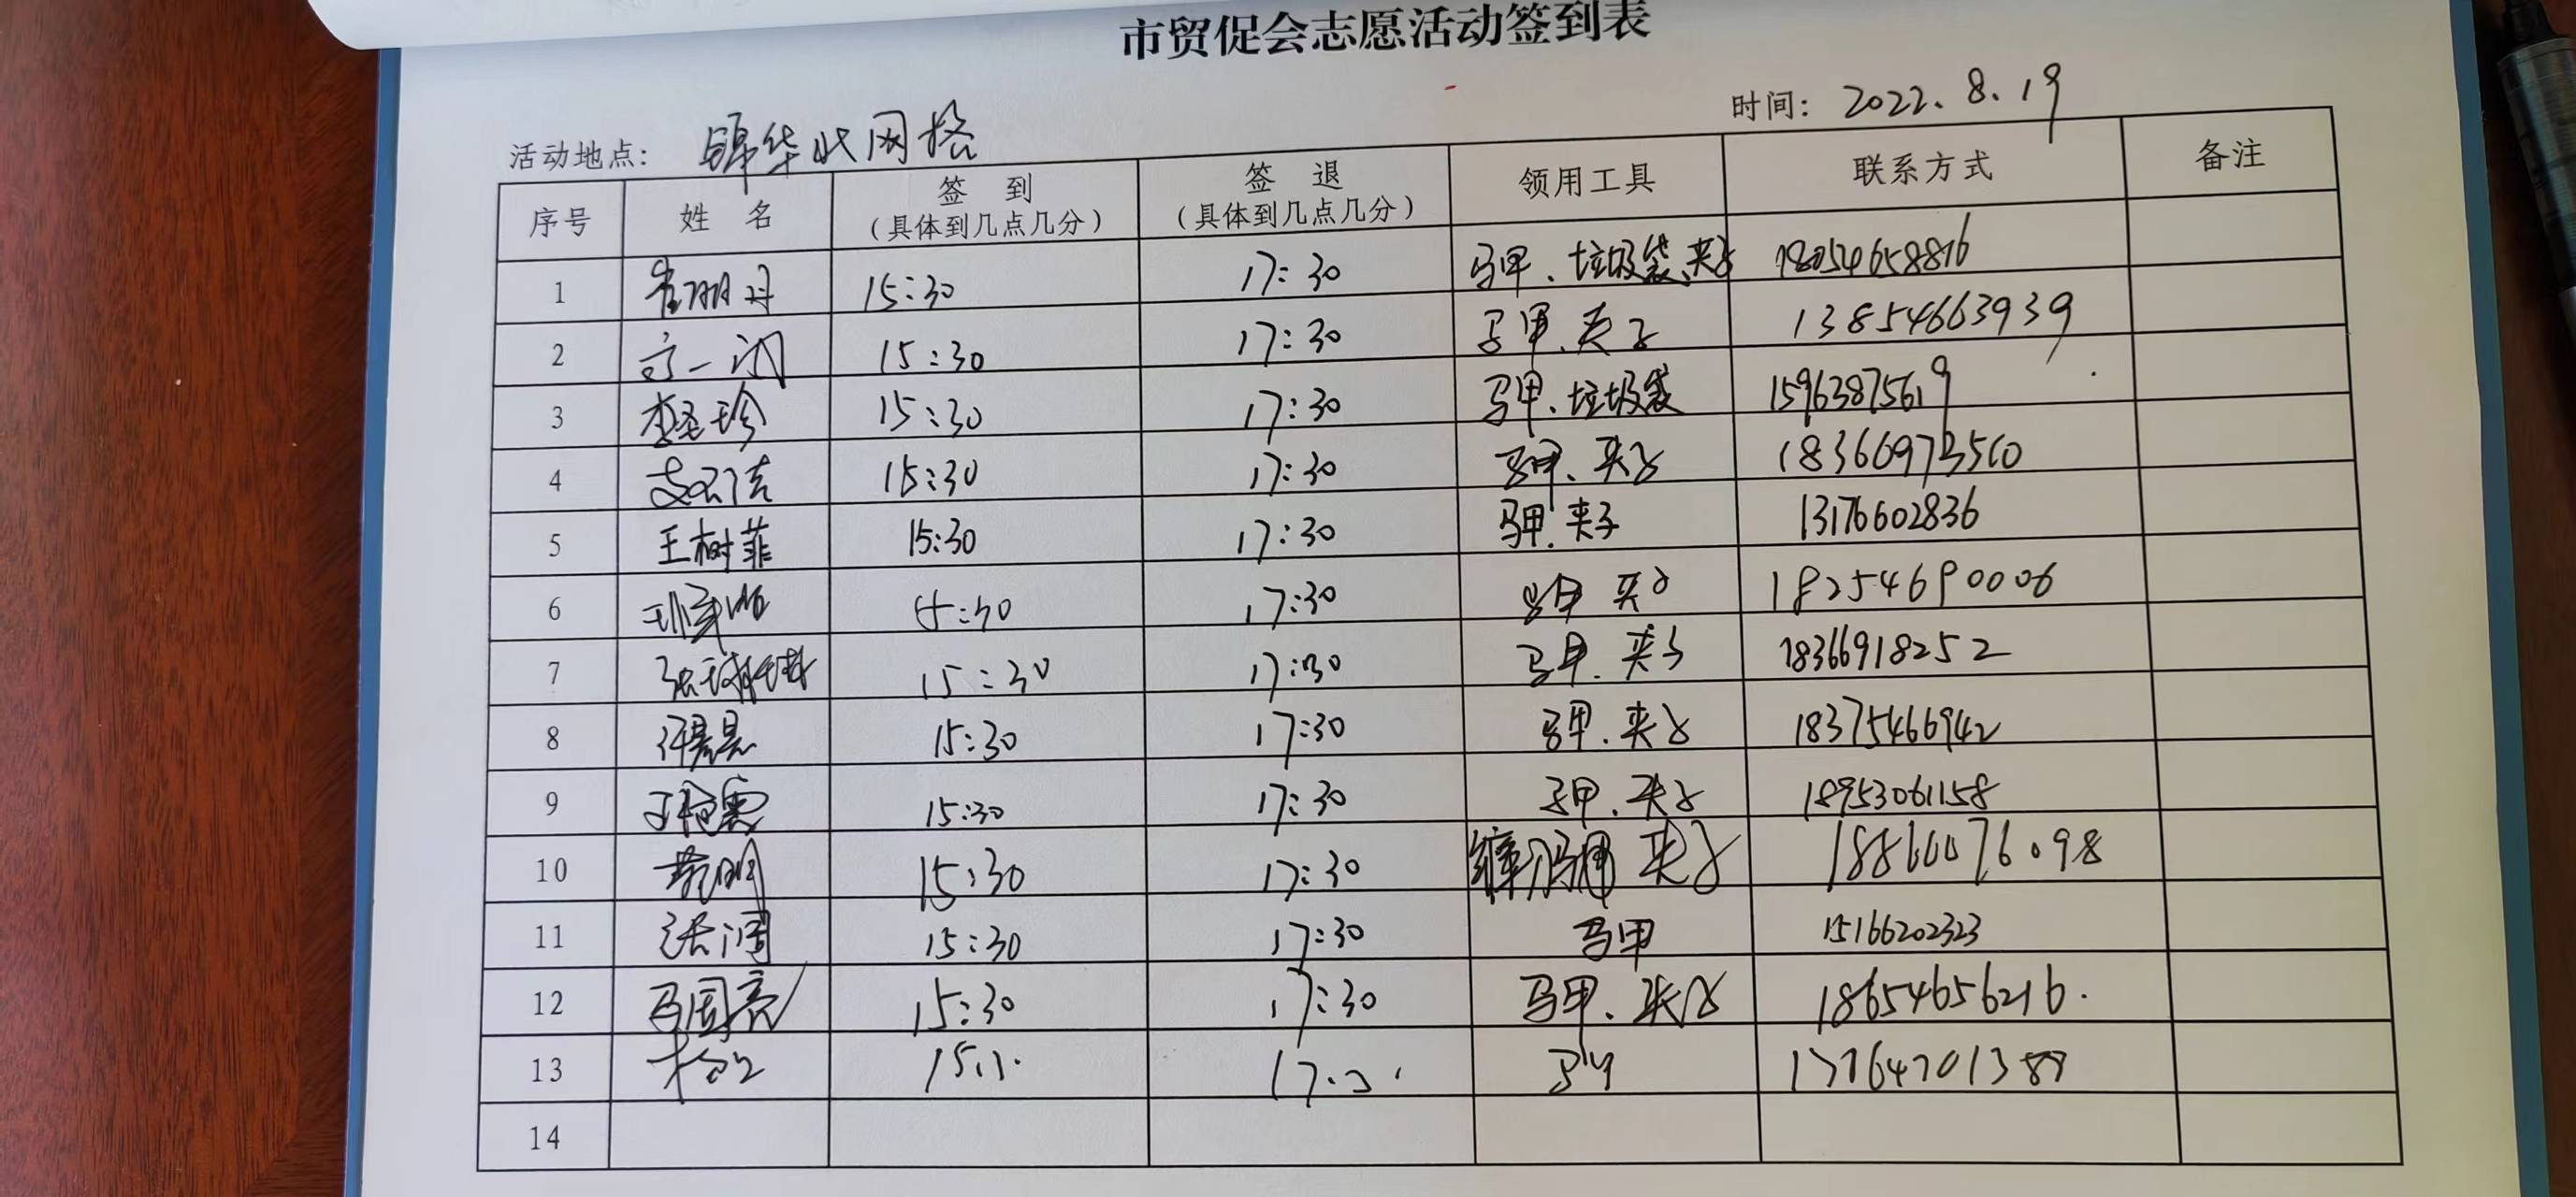 市贸促会志愿活动签到表
时间: 2022.8.19
活动地点: 锦华北网格
序号 姓 名 签 到 (具体到几点几分) 签 退 (具体到几点几分) 领用工具 联系方式 备注
1 崔丽丹 15:30 17:30 马甲、垃圾袋、夹子 18054658816
2 15:30 17:30 马甲、夹子 13854663939
3 15:30 17:30 马甲、垃圾袋 15963875619
4 15:30 17:30 马甲、夹子 18366973510
5 王树菲 15:30 17:30 马甲、夹子 13176602836
6 15:30 17:30 马甲 夹子 18254690006
7 15:30 17:30 马甲、夹子 18366918252
8 15:30 17:30 马甲、夹子 18375466942
9 15:30 17:30 马甲、夹子 18953061158
10 15:30 17:30 夹子
11 张润 15:30 17:30 马甲 15166202323
12 马国亮 15:30 17:30 马甲、夹子 18654656216.
13
14